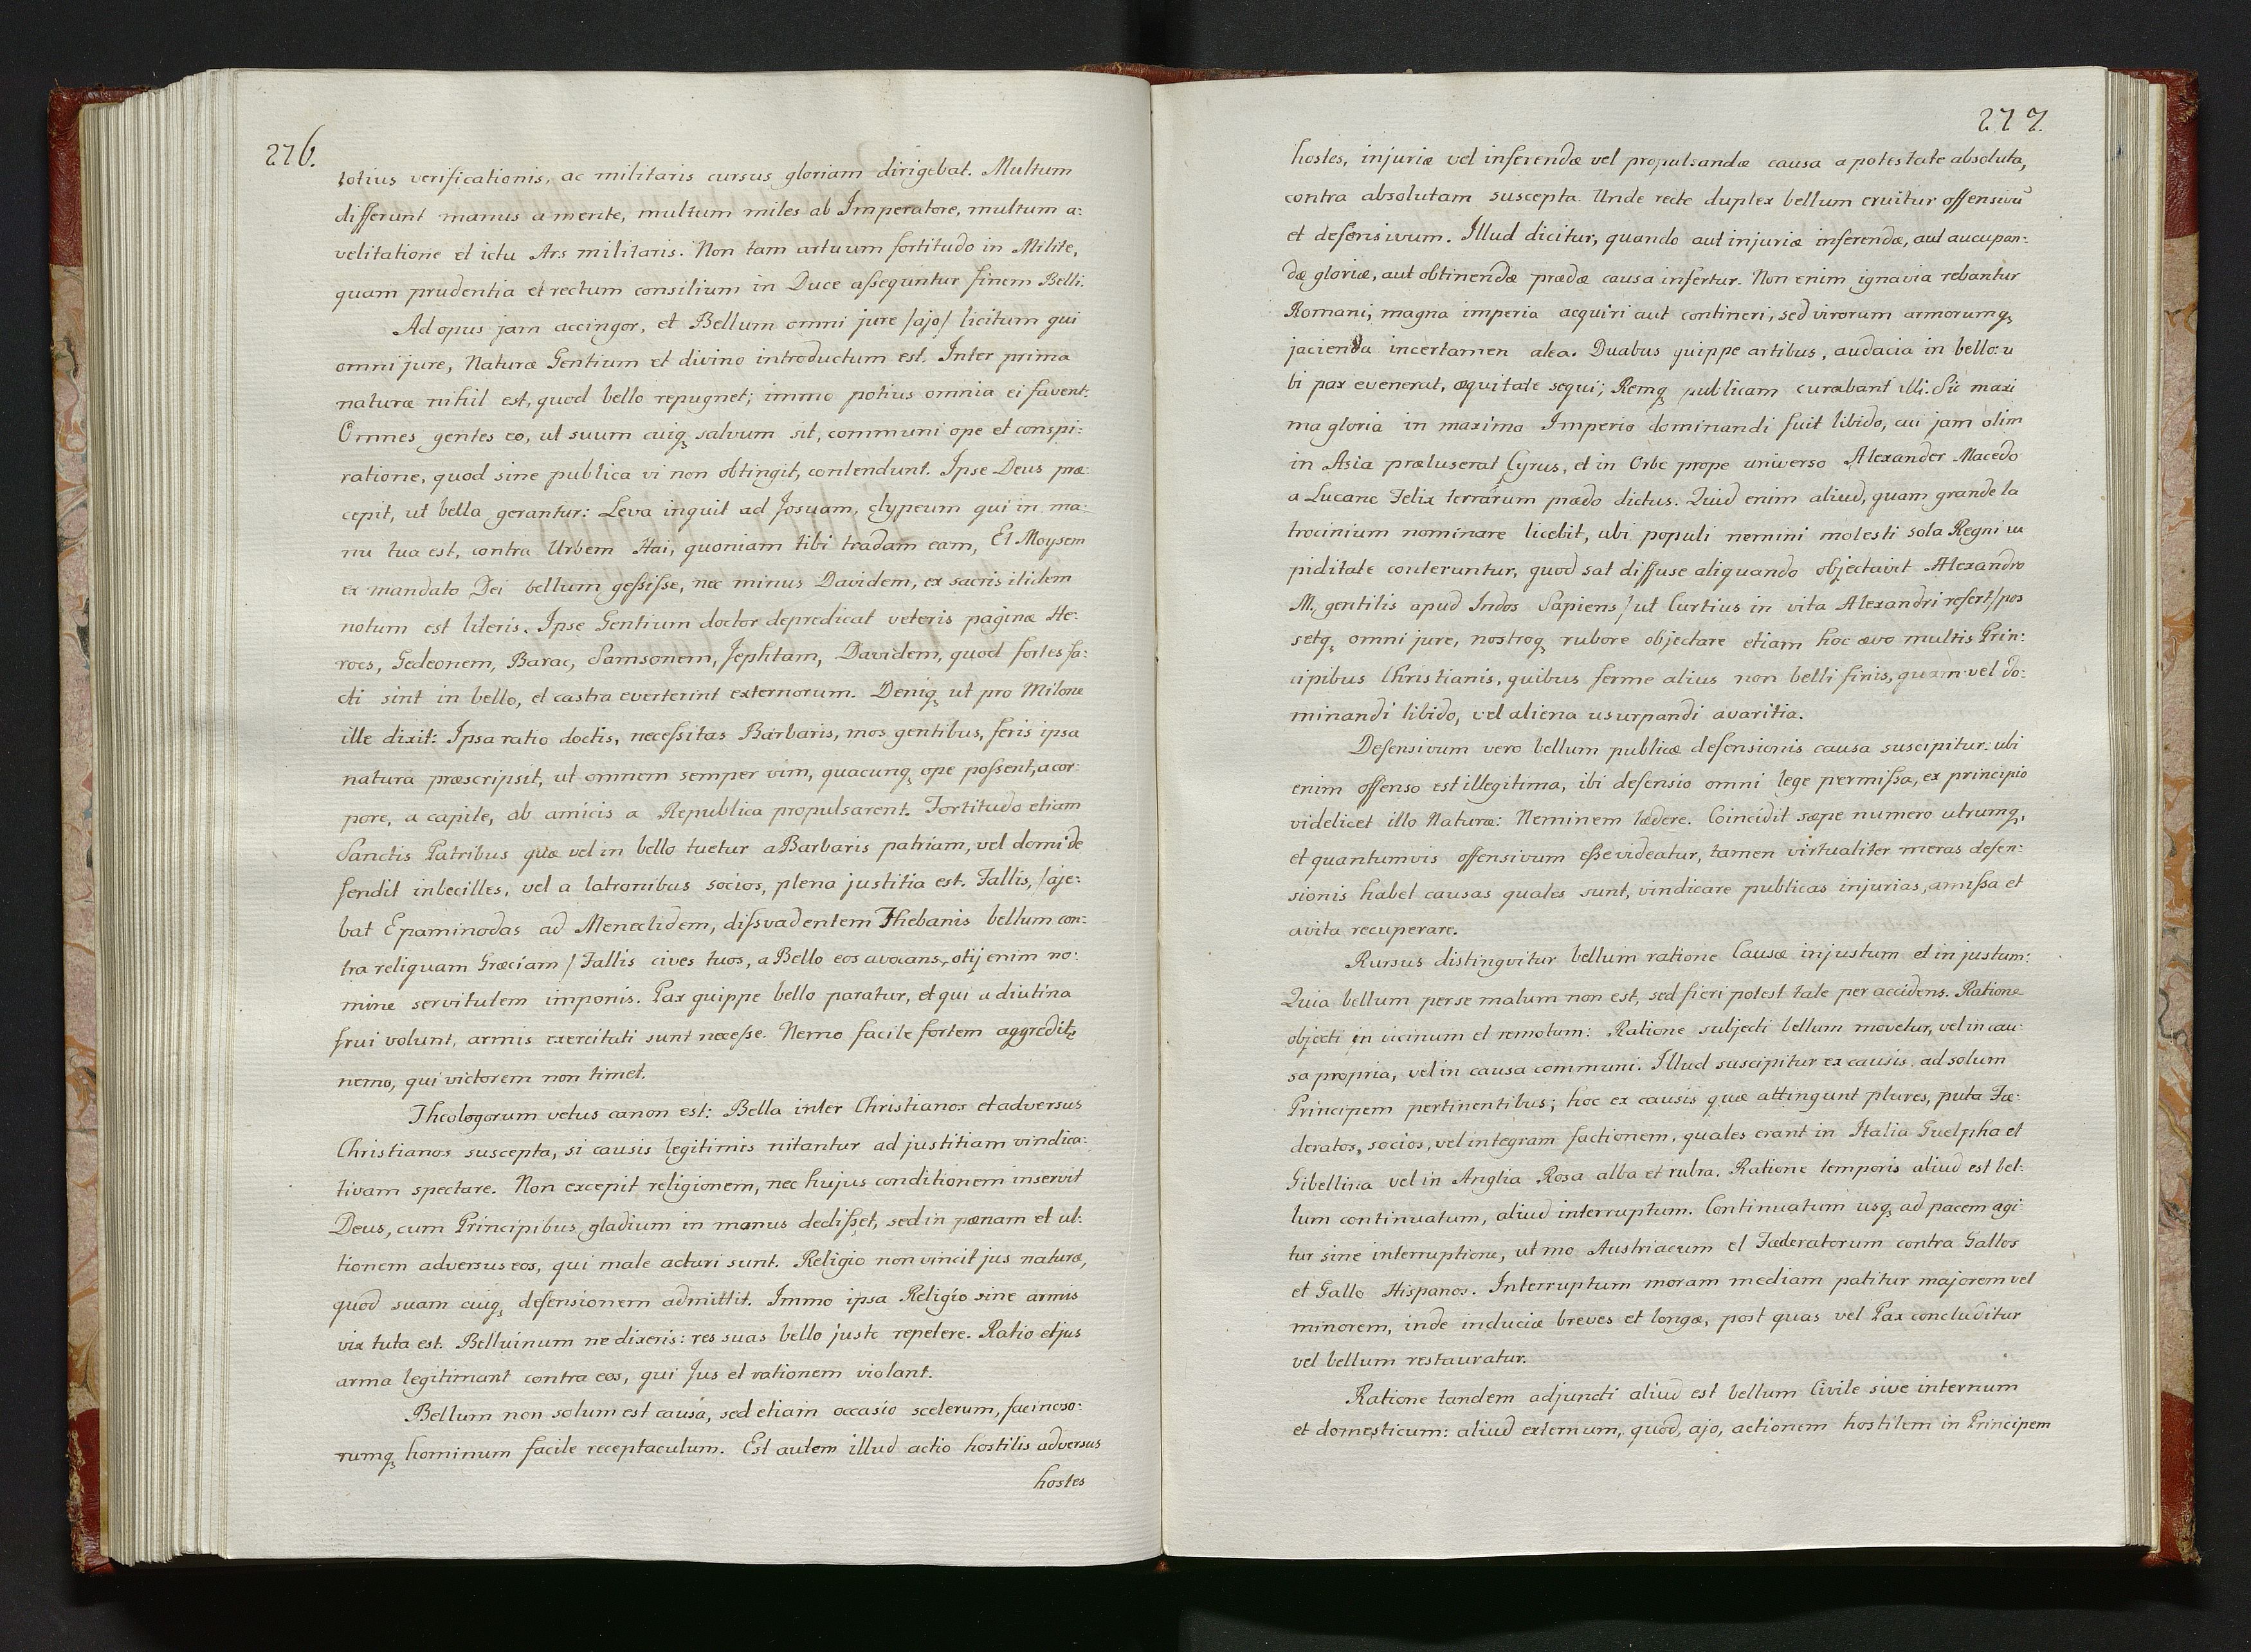 276.
totius verificationis, ac militaris cursus gloriam dirigebat. Multum
differunt manus a mente, multum miles ab Imperatore, multum a:
velitatione et ictu Ars militaris. Non tam artuum fortitudo in Milite,
quam prudentia et rectum consilium in Duce assequntur finem Belli.
Ad opus jam accingor, et Bellum omni jure /ajo/ licitum qui
omni jure, Naturæ Gentium et divino introductum est. Inter prima
naturæ nihil est, quod bello repugnet; immo potius omnia ei favent.
Omnes gentes eo, ut suum cuiqꝫ salvum sit, communi ope et conspi:
ratione, quod sine publica vi non obtingit, contendunt. Ipse Deus præ:
cepit, ut bella gerantur: Leva inquit ad Josuam, clypeum qui in ma:
nu tua est, contra Urbem Hai, quoniam tibi tradam eam, Et Moysem
ex mandato Dei bellum gessisse, nec minus Davidem, ex sacris itidem
notum est literis. Ipse Gentium doctor depredicat veteris paginæ He:
roes, Gedeonem, Barac, Samsonem, Jephtam, Davidem, quod fortes fa:
cti sint in bello, et castra everterint externorum. Deniqꝫ ut pro Milone
ille dixit: Ipsa ratio doctis, necessitas Barbaris, mos gentibus, feris ipsa
natura præscripsit, ut omnem semper vim, quacunqꝫ ope possent, a cor:
pore, a capite, ab amicis a Republica propulsarent. Fortitudo etiam
Sanctis Patribus quæ vel in bello tuetur a Barbaris patriam, vel domi de
fendit inbecilles, vel a latronibus socios, plena justitia est. Fallis, /aje:
bat Epaminodas ad Meneclidem, dissvadentem Thebanis bellum con:
tra reliquam Græciam / Fallis cives tuos, a Bello eos avocans, otij enim no:
mine servitutem imponis. Pax quippe bello paratur, et qui ea diutina
frui volunt, armis exercitati sunt necesse. Nemo facile fortem aggredit,
nemo, qui victorem non timet.
Theologorum vetus canon est: Bella inter Christianos et adversus
Christianos suscepta, si causis legitimis nitantur ad justitiam vindica:
tivam spectare. Non excepit religionem, nec hujus conditionem inservit
Deus, cum Principibus gladium in manus dedisset, sed in pænam et ul:
tionem adversus eos, qui male acturi sunt. Religio non vincit jus naturæ,
quod suam cuiqꝫ defensionem admittit. Immo ipsa Religio sine armis
vix tuta est. Belluinum ne dixeris: res suas bello juste repetere. Ratio et jus
arma legitimant contra eos, qui Jus et rationem violant.
Bellum non solum est causa, sed etiam occasio scelerum, facinoso:
rumqꝫ hominum facile receptaculum. Est autem illud actio hostilis adversus
hostes
277.
hostes, injuriæ vel inferendæ vel propulsandæ causa a potestate absoluta,
contra absolutam suscepta. Unde recte duplex bellum eruitur offensivū
et defensivum. Illud dicitur, quando aut injuriæ inferendæ, aut aucupan:
dæ gloriæ, aut obtinendæ prædæ causa infertur. Non enim ignavia rebantur
Romani, magna imperia acquiri aut contineri, sed virorum armorumqꝫ
jacienda incertamen alea. Duabus quippe artibus, audacia in bello: u
bi pax evenerat, æquitate sequi; Remqꝫ publicam curabant illi. Sic maxi
ma gloria in maximo Imperio dominandi fuit libido, cui jam olim
in Asia præluserat Cyrus, et in Orbe prope universo Alexander Macedo
a Lucano Felix terrarum prædo dictus. Quid enim aliud, quam grande la
trocinium nominare licebit, ubi populi nemini molesti sola Regni cu
piditate conteruntur, quod sat diffuse aliquando objectavit Alexandro
M. gentilis apud Indos Sapiens, / ut Curtius in vita Alexandri refert / pos
setqꝫ omni jure, nostroqꝫ rubore objectare etiam hoc ævo multis Prin:
cipibus Christianis, quibus ferme alius non belli finis, quam vel do:
minandi libido, vel aliena usurpandi avaritia.
Defensivum vero bellum publicæ defensionis causa suscipitur: ubi
enim offenso est illegitima, ibi defensio omni lege permissa, ex principio
videlicet illo Naturæ: Neminem lædere. Coincidit sæpe numero utrumqꝫ,
et quantumvis offensivum esse videatur, tamen virtualiter meras defen:
sionis habet causas quales sunt, vindicare publicas injurias, amissa et
avita recuperare.
Rursus distingvitur bellum ratione Causæ injustum et in justum:
Quia bellum per se malum non est, sed fieri potest tale per accidens. Ratione
objecti in vicinum et remotum: Ratione subjecti bellum movetur, vel in cau:
sa propria, vel in causa communi. Illud suscipitur ex causis ad solum
Principem pertinentibus; hoc ex causis quæ attingunt plures, puta Fæ:
deratos, socios, vel integram factionem, quales erant in Italia Guelpha et
Gibellina vel in Anglia Rosa alba et rubra. Ratione temporis aliud est bel:
lum continuatum, aliud interruptum. Continuatum usqꝫ ad pacem agi:
tur sine interruptione, ut mo Austriacum et Fæderatorum contra Gallos
et Gallo Hispanos. Interruptum moram mediam patitur majorem vel
minorem, inde induciæ breves et longæ, post quas vel Pax concluditur
vel bellum restauratur.
Ratione tandem adjuncti aliud est bellum Civile sive internum
et domesticum: aliud externum, quod, ajo, actionem hostilem in Principem